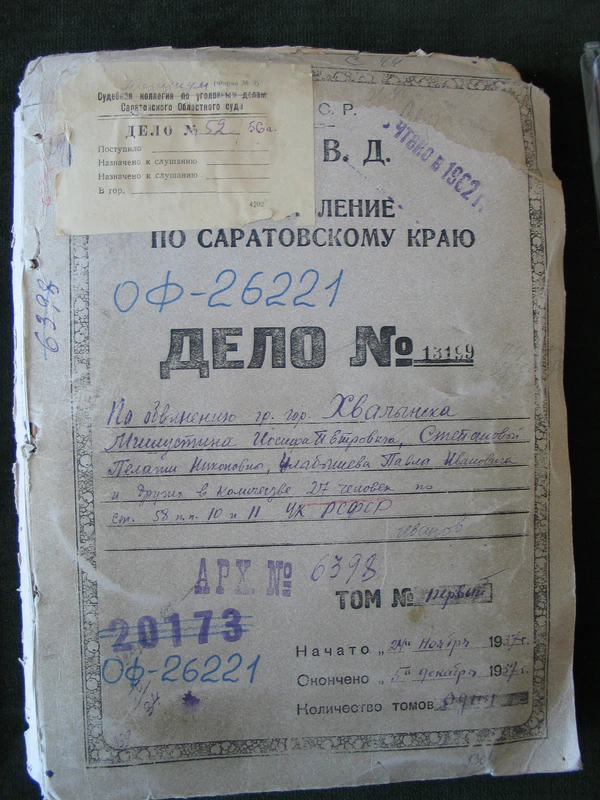 Судебная коллегия по уголовным делам
Саратовского Областного суда
ДЕЛО № 52 56 г.
Поступило
Назначено к слушанию
Назначено к слушанию
В гор.
4202
С. Р.
В. Д.
чтено в 1962 г.
ЛЕНИЕ
ПО САРАТОВСКОМУ КРАЮ
ОФ-26221
6398
ДЕЛО № 13199
По обвинению гр. гор. Хвалынска
Мишустина Иосифа Петровича, Степановой
Пелагии Никоновны, Павла Ивановича
и других в количестве 27 человек по
ст. 58 п.п. 10 и 11 УК РСФСР
Иванов
АРХ № 6398
ТОМ № первый
20173
ОФ-26221
Начато „24“ ноября 1937 г.
Окончено „5“ декабря 1937 г.
Количество томов один